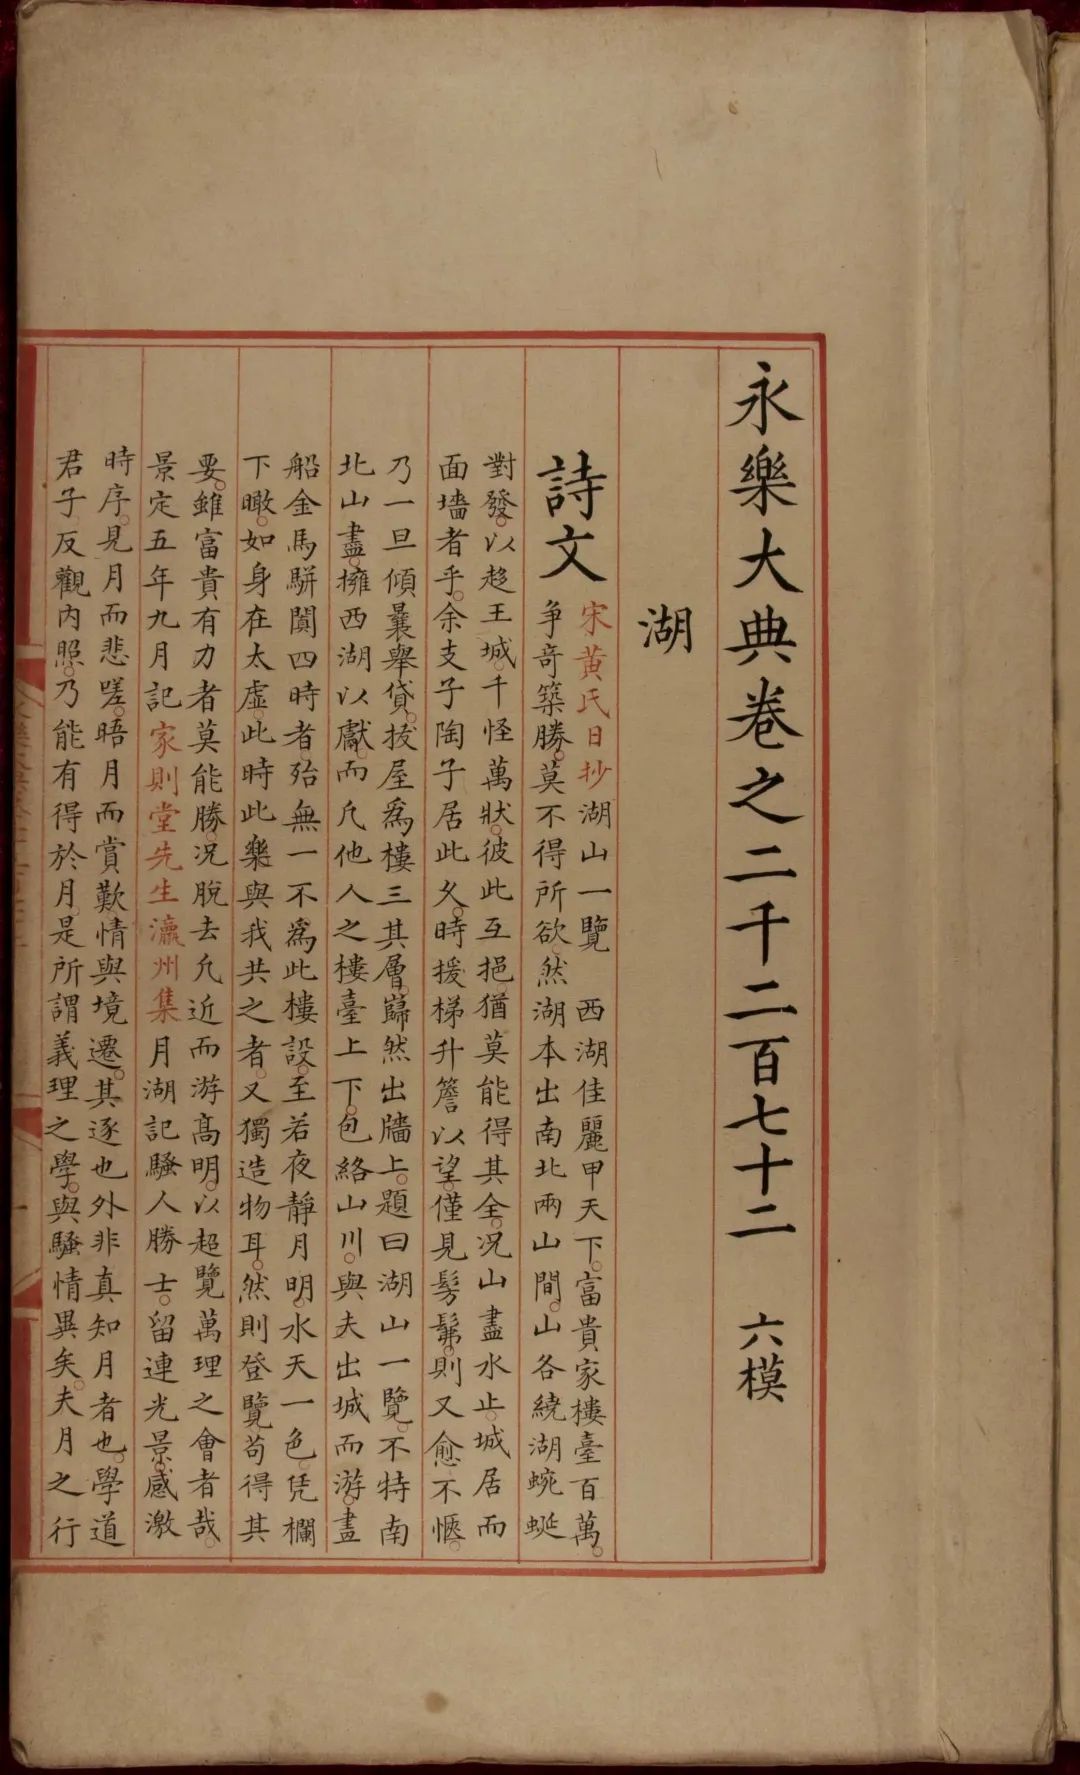 永樂大典卷之二千二百七十二 六模
湖
詩文
宋黃氏日抄湖山一覽 西湖佳麗甲天下。富貴家樓臺百萬。
争竒築勝。莫不得所欲。然湖本出南北兩山間。山各繞湖蜿蜒
對發。以趍王城。千怪萬狀。彼此互挹。猶莫能得其全。况山盡水止。城居而
面墻者乎。余支子陶子居此乆。時援梯升簷以望。僅見髣髴。則又愈不愜。
乃一旦傾曩舉貸。拔屋爲樓三其層。巋然出牆上。題曰湖山一覽。不特南
北山盡。擁西湖以獻。而凢他人之樓臺上下。包絡山川。與夫出城而游。畫
船金馬駢闐四時者。殆無一不爲此樓設。至若夜靜月明。水天一色。凭欄
下瞰。如身在太虛。此時此樂與我共之者。又獨造物耳。然則登覽苟得其
要。雖富貴有力者莫能勝。况脫去凢近而游髙明。以超覽萬理之會者哉。
景定五年九月記家則堂先生瀛州集月湖記騷人勝士。留連光景。感激
時序。見月而悲嗟。晤月而賞歎。情與境遷。其逐也外非真知月者也。學道
君子反觀内照。乃能有得於月。是所謂義理之學。與騷情異矣。夫月之行